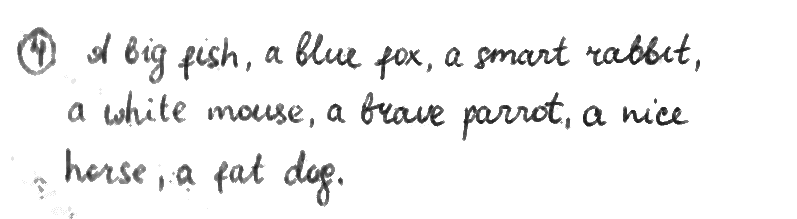 4 A big fish, a blue fox, a smart rabbit,
a white mouse, a brave parrot, a nice
horse, a fat dog.